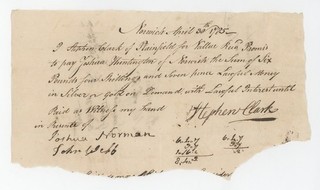 Norwich April 30th 1785
I Stephen Clark of Plainfield for Value Recd Promis
to pay Joshua Huntington of Norwich the Sum of Six
Pounds four Shillings and Seven pence Lawful Money
in Silver or Gold on Demand, with Lawful Interest until
Paid as Witness my hand
in Presents of
Stephen Clark
Joshua Norman
John
6.4.7 6.4.7